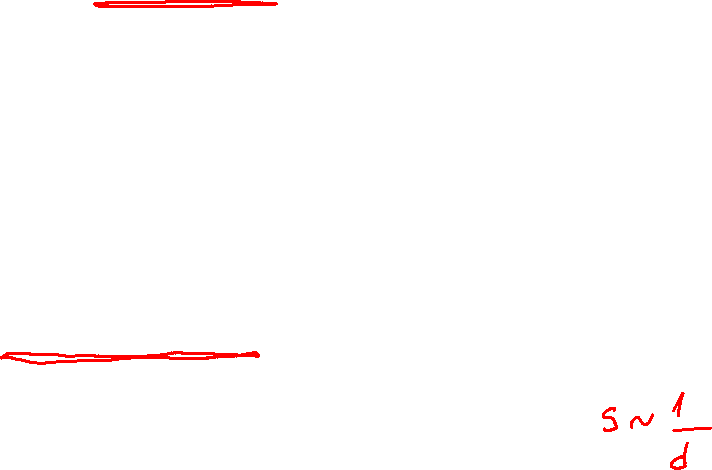 s ~ 1/d